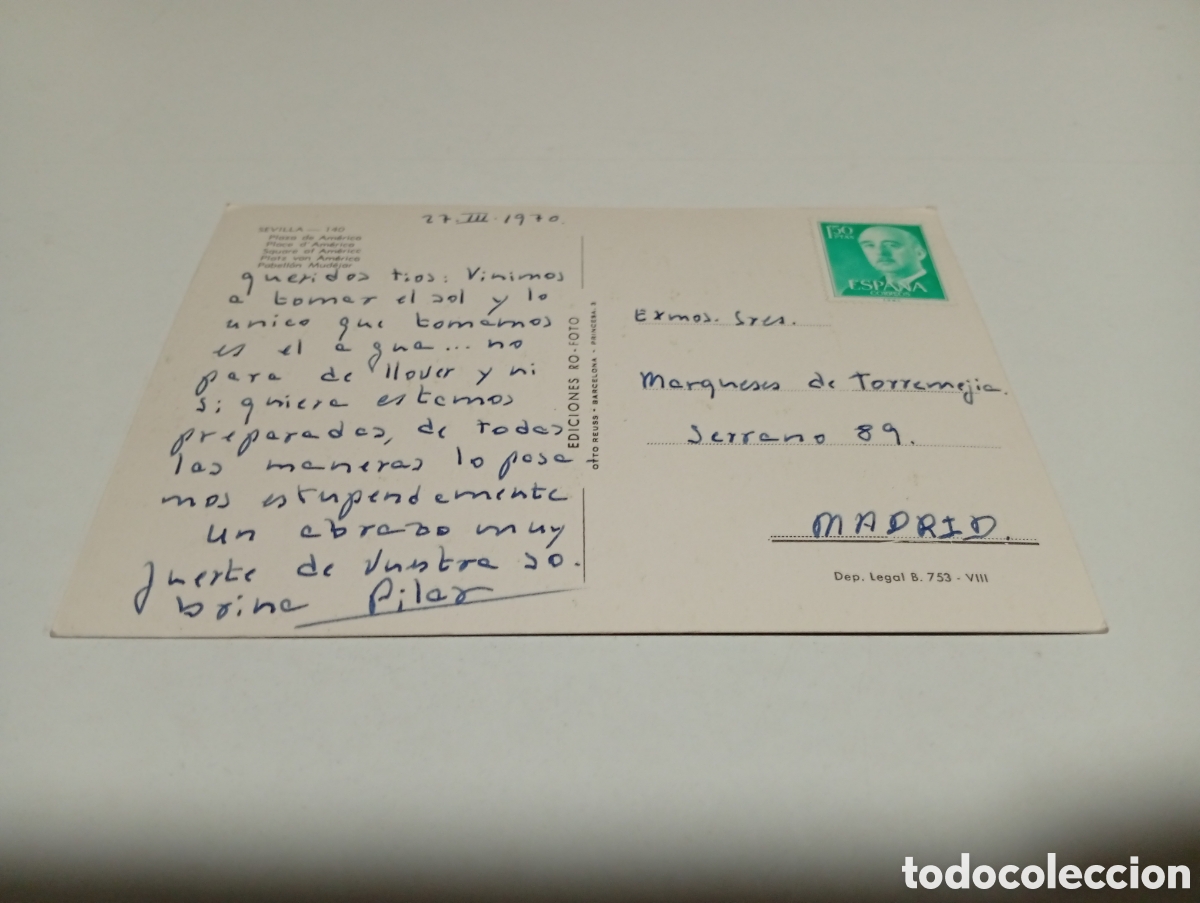 27-III-1970.
SEVILLA — 140
Plaza de América
Place d'Amérique
Square of America
Platz von Amérika
Pabellón Mudéjar
queridos tios: Vinimos
a tomar el sol y lo
unico que tomamos
es el agua... no
para de llover y ni
siquiera estamos
preparadas, de todas
las maneras lo pasa
mos estupendamente
un abrazo muy
fuerte de vuestra so.
brina Pilar
EDICIONES RO-FOTO
OTTO REUSS - BARCELONA - PRINCESA, 3
1,50
PTAS
ESPAÑA
CORREOS
Exmos. Sres.
Marqueses de Torremejia.
Serrano 89.
MADRID.
Dep. Legal B. 753 - VIII
todocoleccion